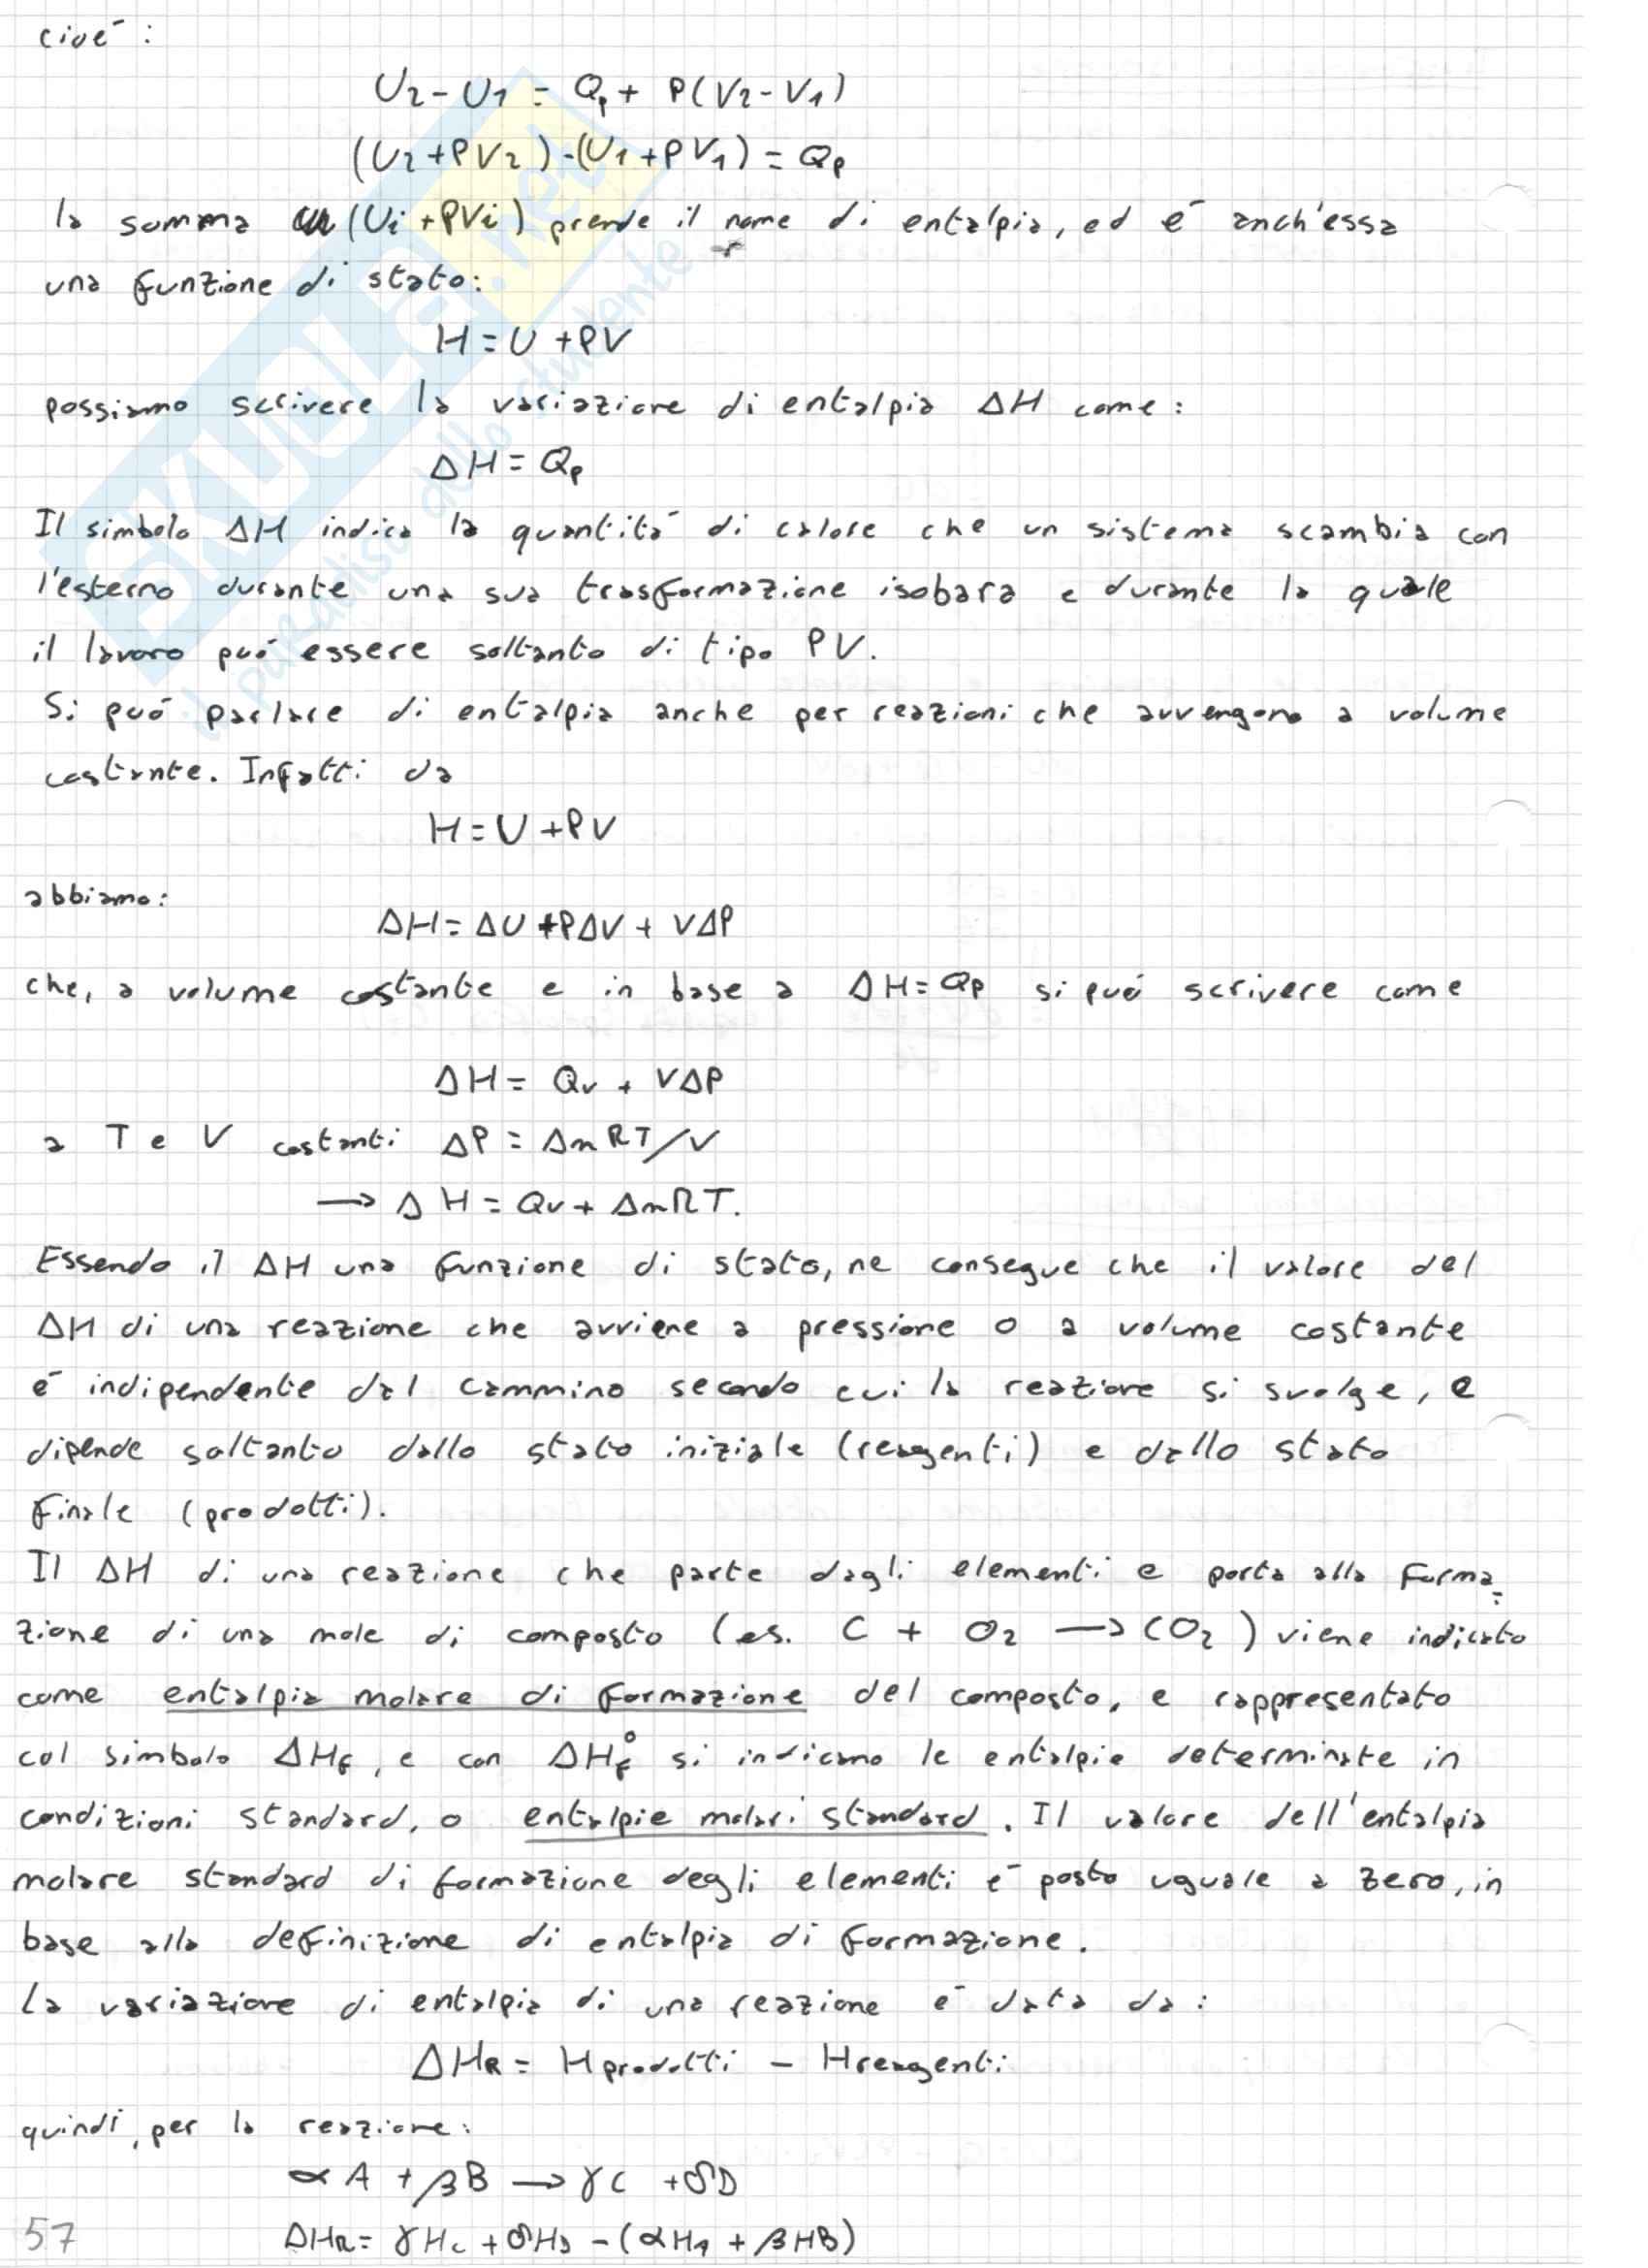 cioé :
U2 - U1 = Qp + P(V2 - V1)
(U2 + PV2) - (U1 + PV1) = Qp
la somma (Ui + PVi) prende il nome di entalpia, ed é anch'essa
una funzione di stato:
H = U + PV
possiamo scrivere la variazione di entalpia ΔH come :
ΔH = Qp
Il simbolo ΔH indica la quantitá di calore che un sistema scambia con
l'esterno durante una sua trasformazione isobara e durante la quale
il lavoro puó essere soltanto di tipo PV.
Si puó parlare di entalpia anche per reazioni che avvengono a volume
costante. Infatti da
H = U + PV
abbiamo:
ΔH = ΔU + PΔV + VΔP
che, a volume costante e in base a ΔH = Qp si puó scrivere come
ΔH = Qv + VΔP
a T e V costanti ΔP = ΔnRT/V
→ ΔH = Qv + ΔnRT.
Essendo il ΔH una funzione di stato, ne consegue che il valore del
ΔH di una reazione che avviene a pressione o a volume costante
é indipendente dal cammino secondo cui la reazione si svolge, e
dipende soltanto dallo stato iniziale (reagenti) e dallo stato
finale (prodotti).
Il ΔH di una reazione che parte dagli elementi e porta alla forma=
zione di una mole di composto (es. C + O2 → CO2) viene indicato
come entalpia molare di formazione del composto, e rappresentato
col simbolo ΔHf, e con ΔH°f si indicano le entalpie determinate in
condizioni standard, o entalpie molari standard. Il valore dell'entalpia
molare standard di formazione degli elementi é posto uguale a zero, in
base alla definizione di entalpia di formazione.
La variazione di entalpia di una reazione é data da :
ΔHR = Hprodotti - Hreagenti
quindi, per la reazione:
αA + βB → γC + δD
ΔHR = γHC + δHD - (αHA + βHB)
57
SKUOLA.net
il paradiso dello studente